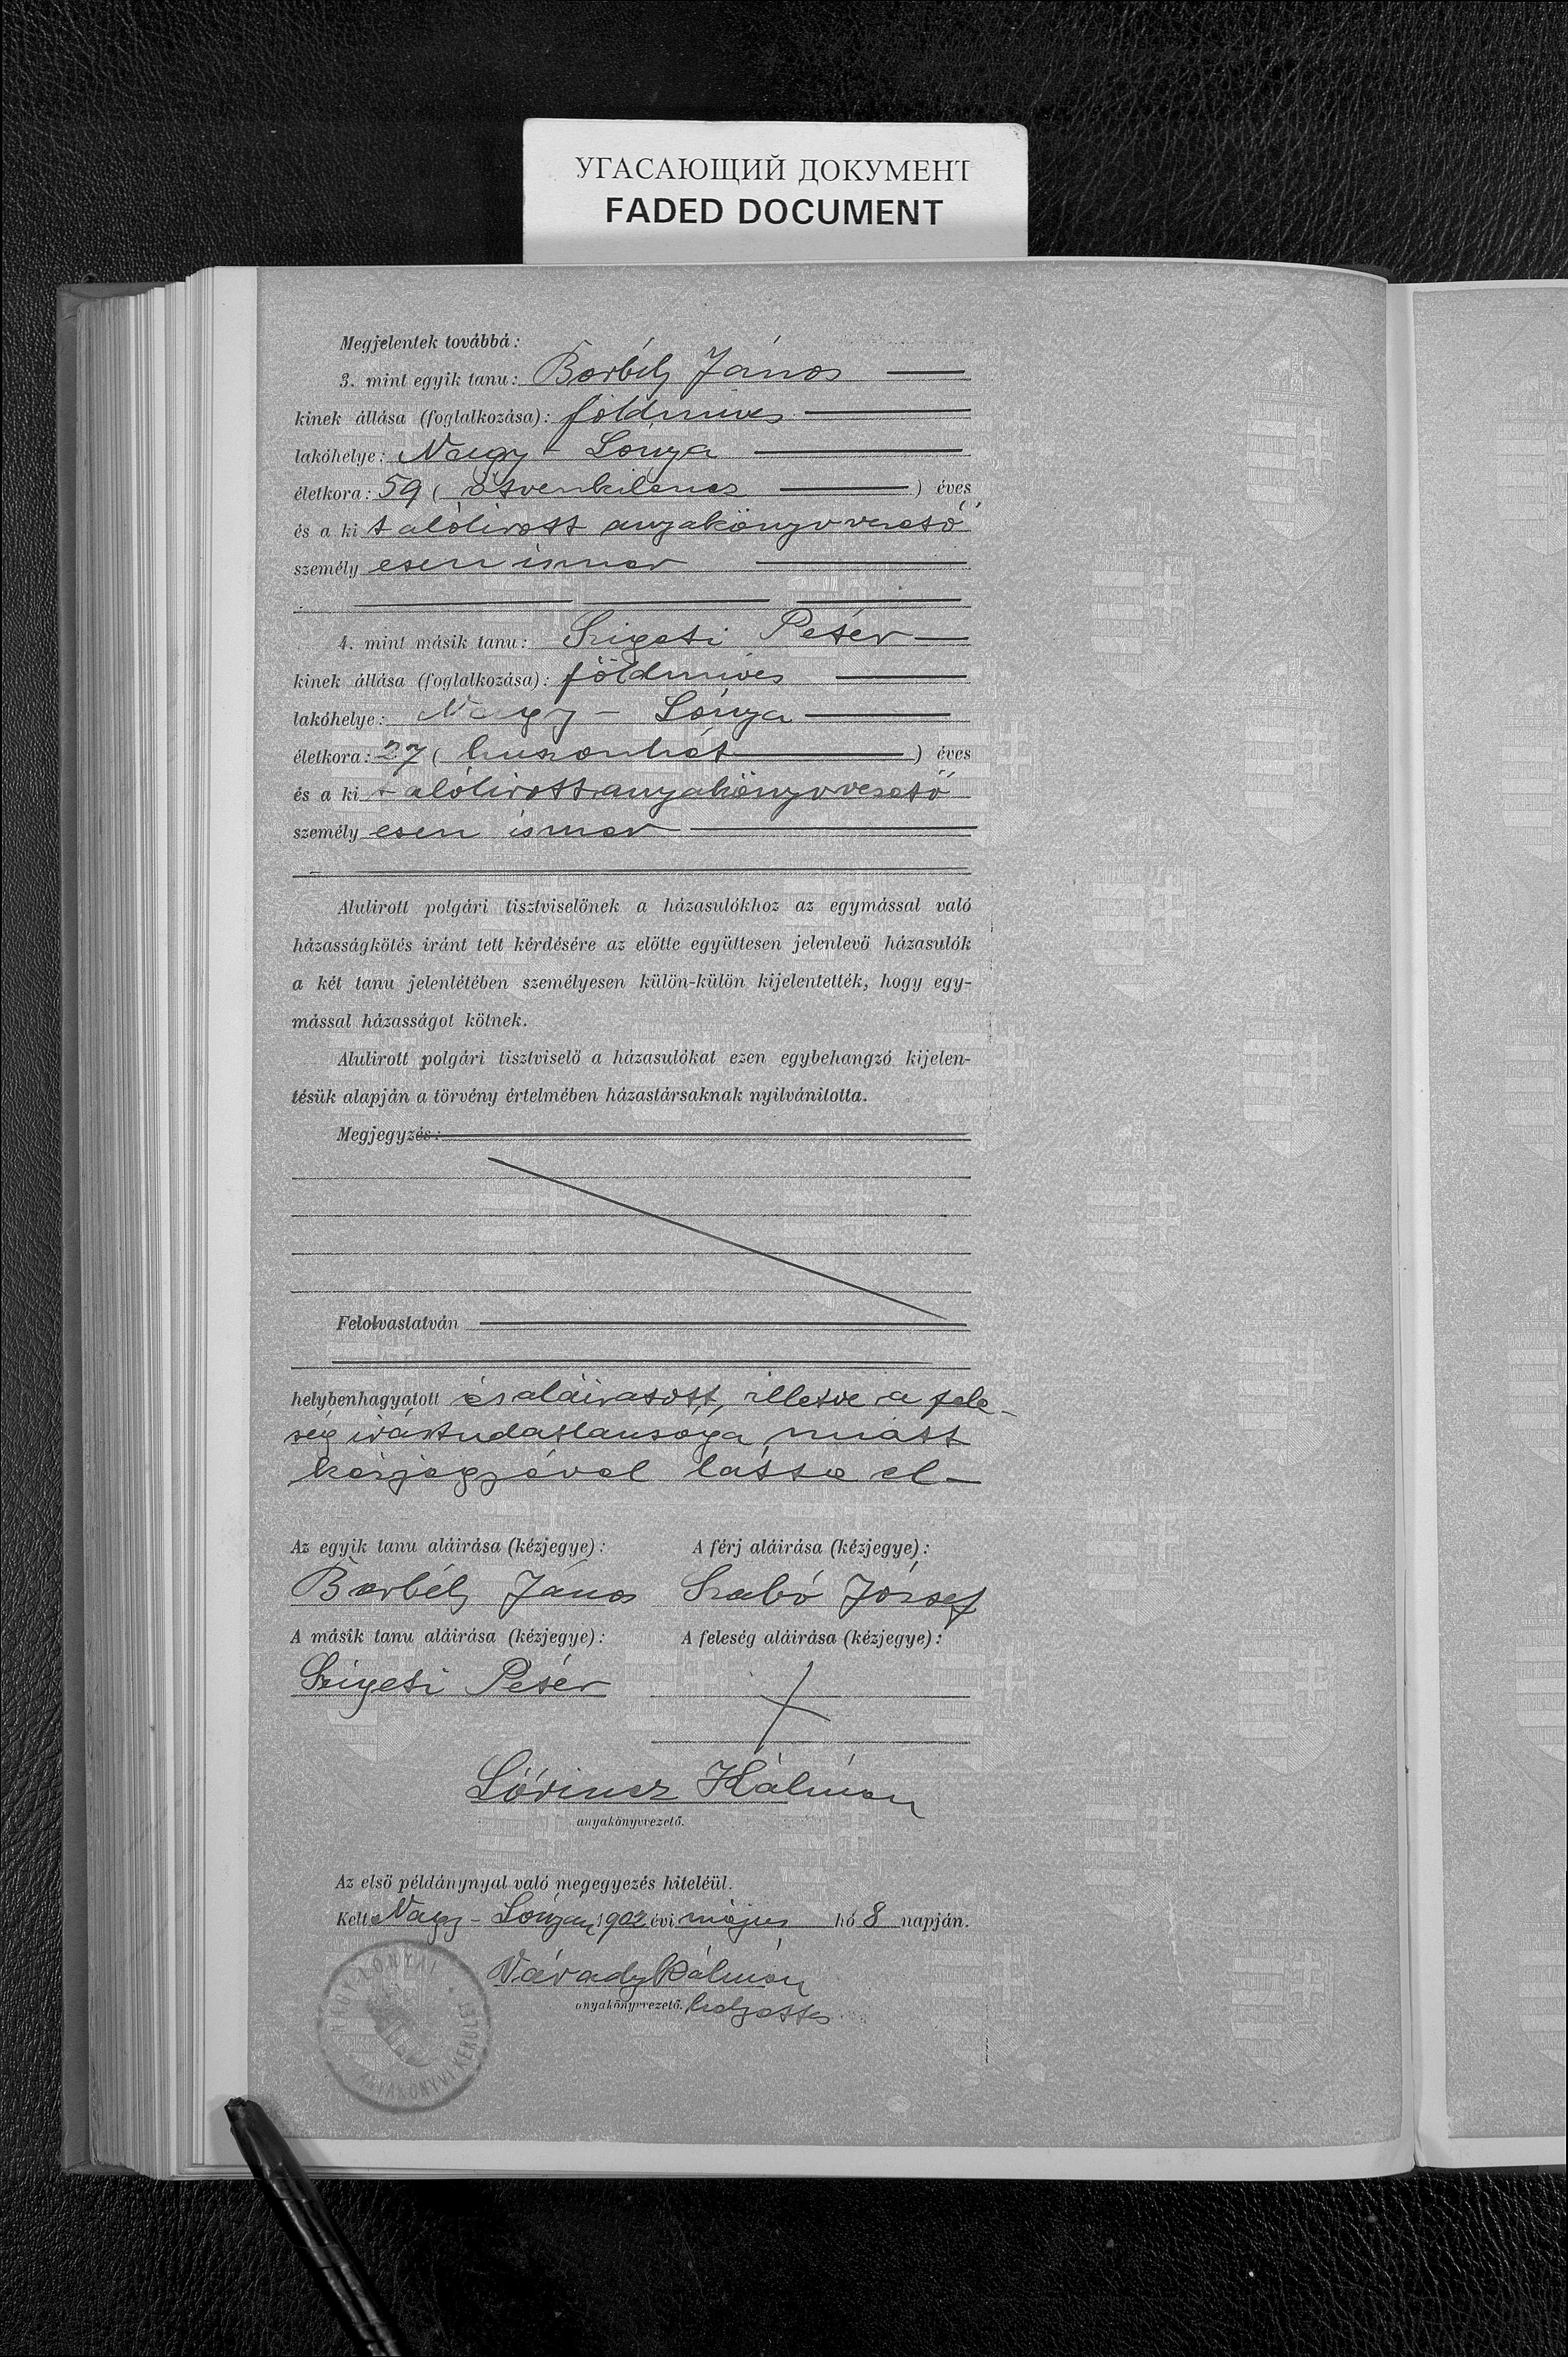 УГАСАЮЩИЙ ДОКУМЕНТ
FADED DOCUMENT
Megjelentek továbbá:
3. mint egyik tanu: Borbély János
kinek állása (foglalkozása): földmives
lakóhelye: Nagy-Lónya
életkora: 59 (ötvenkilencz) éves
és a ki t alólirott anyakönyvvezető
személyesen ismer
4. mint másik tanu: Szigeti Péter
kinek állása (foglalkozása): földmives
lakóhelye: Nagy-Lónya
életkora: 27 (huszonhét) éves
és a ki t alólirott anyakönyvvezető
személyesen ismer
Alulirott polgári tisztviselőnek a házasulókhoz az egymással való
házasságkötés iránt tett kérdésére az előtte együttesen jelenlevő házasulók
a két tanu jelenlétében személyesen külön-külön kijelentették, hogy egy-
mással házasságot kötnek.
Alulirott polgári tisztviselő a házasulókat ezen egybehangzó kijelen-
tésük alapján a törvény értelmében házastársaknak nyilvánitotta.
Megjegyzés:
Felolvastatván
helybenhagyatott és aláiratott, illetve a fele-
ség irástudatlansága miatt
kézjegyével látta el-
Az egyik tanu aláirása (kézjegye): A férj aláirása (kézjegye):
Borbély János Szabó József
A másik tanu aláirása (kézjegye): A feleség aláirása (kézjegye):
Szigeti Péter
Lőrincz Kálmán
anyakönyvvezető.
Az első példánynyal való megegyezés hiteléül.
Kelt Nagy-Lónyán, 1902 évi május hó 8 napján.
Várady Kálmán
anyakönyvvezető. helyettes
NAGY-LÓNYAI ANYAKÖNYVI KERÜLET